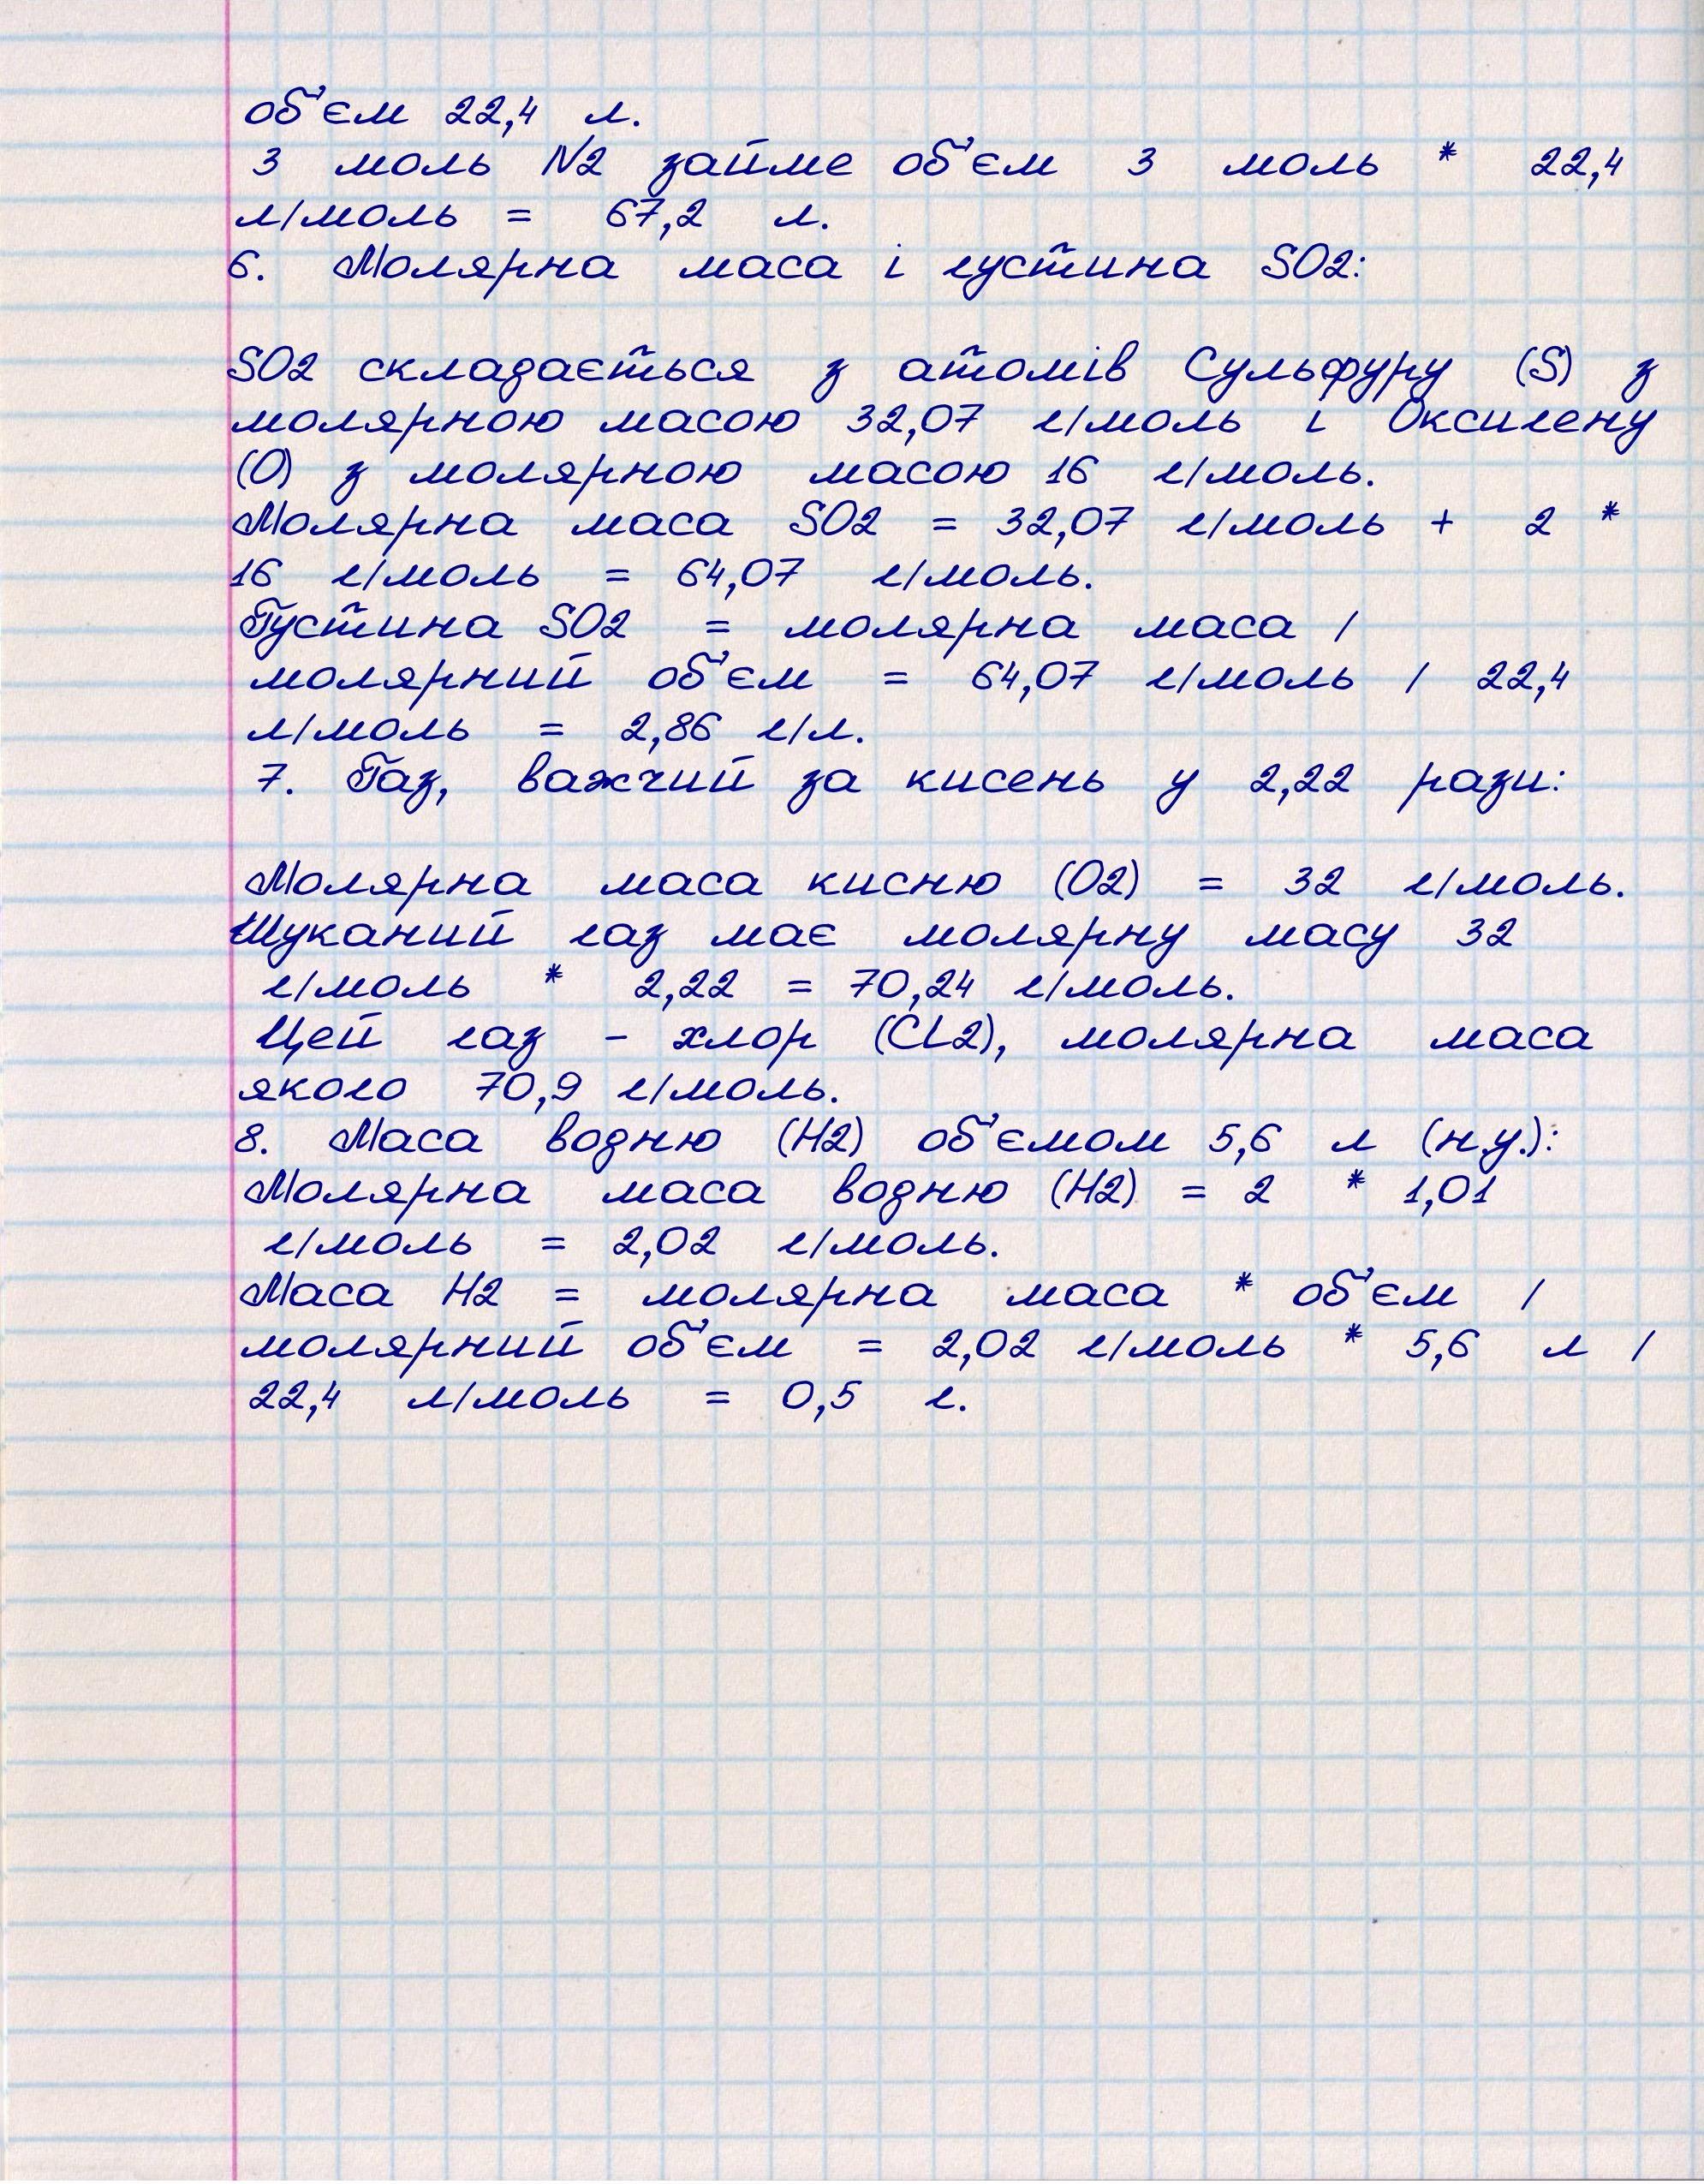 об'єм 22,4 л.
3 моль N2 займе об'єм 3 моль * 22,4
л/моль = 67,2 л.
6. Молярна маса і густина SO2:
SO2 складається з атомів Сульфуру (S) з
молярною масою 32,07 г/моль і Оксигену
(O) з молярною масою 16 г/моль.
Молярна маса SO2 = 32,07 г/моль + 2 *
16 г/моль = 64,07 г/моль.
Густина SO2 = молярна маса /
молярний об'єм = 64,07 г/моль / 22,4
л/моль = 2,86 г/л.
7. Газ, важчий за кисень у 2,22 рази:
Молярна маса кисню (O2) = 32 г/моль.
Шуканий газ має молярну масу 32
г/моль * 2,22 = 70,24 г/моль.
Цей газ - хлор (Cl2), молярна маса
якого 70,9 г/моль.
8. Маса водню (H2) об'ємом 5,6 л (н.у.):
Молярна маса водню (H2) = 2 * 1,01
г/моль = 2,02 г/моль.
Маса H2 = молярна маса * об'єм /
молярний об'єм = 2,02 г/моль * 5,6 л /
22,4 л/моль = 0,5 г.